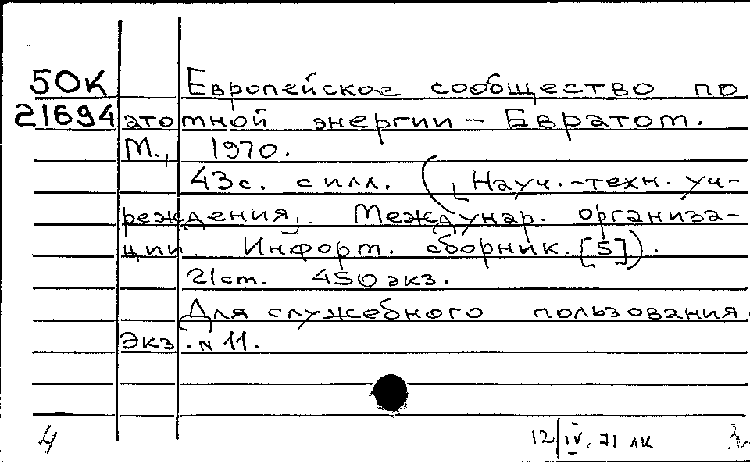 50К Европейское сообщество по
21694 атомной энергии – Евратом.
М., 1970.
43с. с илл. (Науч.-техн. уч-
реждения. Междунар. организа-
ции. Информ. сборник. [5]).
21см. 450 экз.
Для служебного пользования.
Экз. № 11.
4 12/IV.71 лк